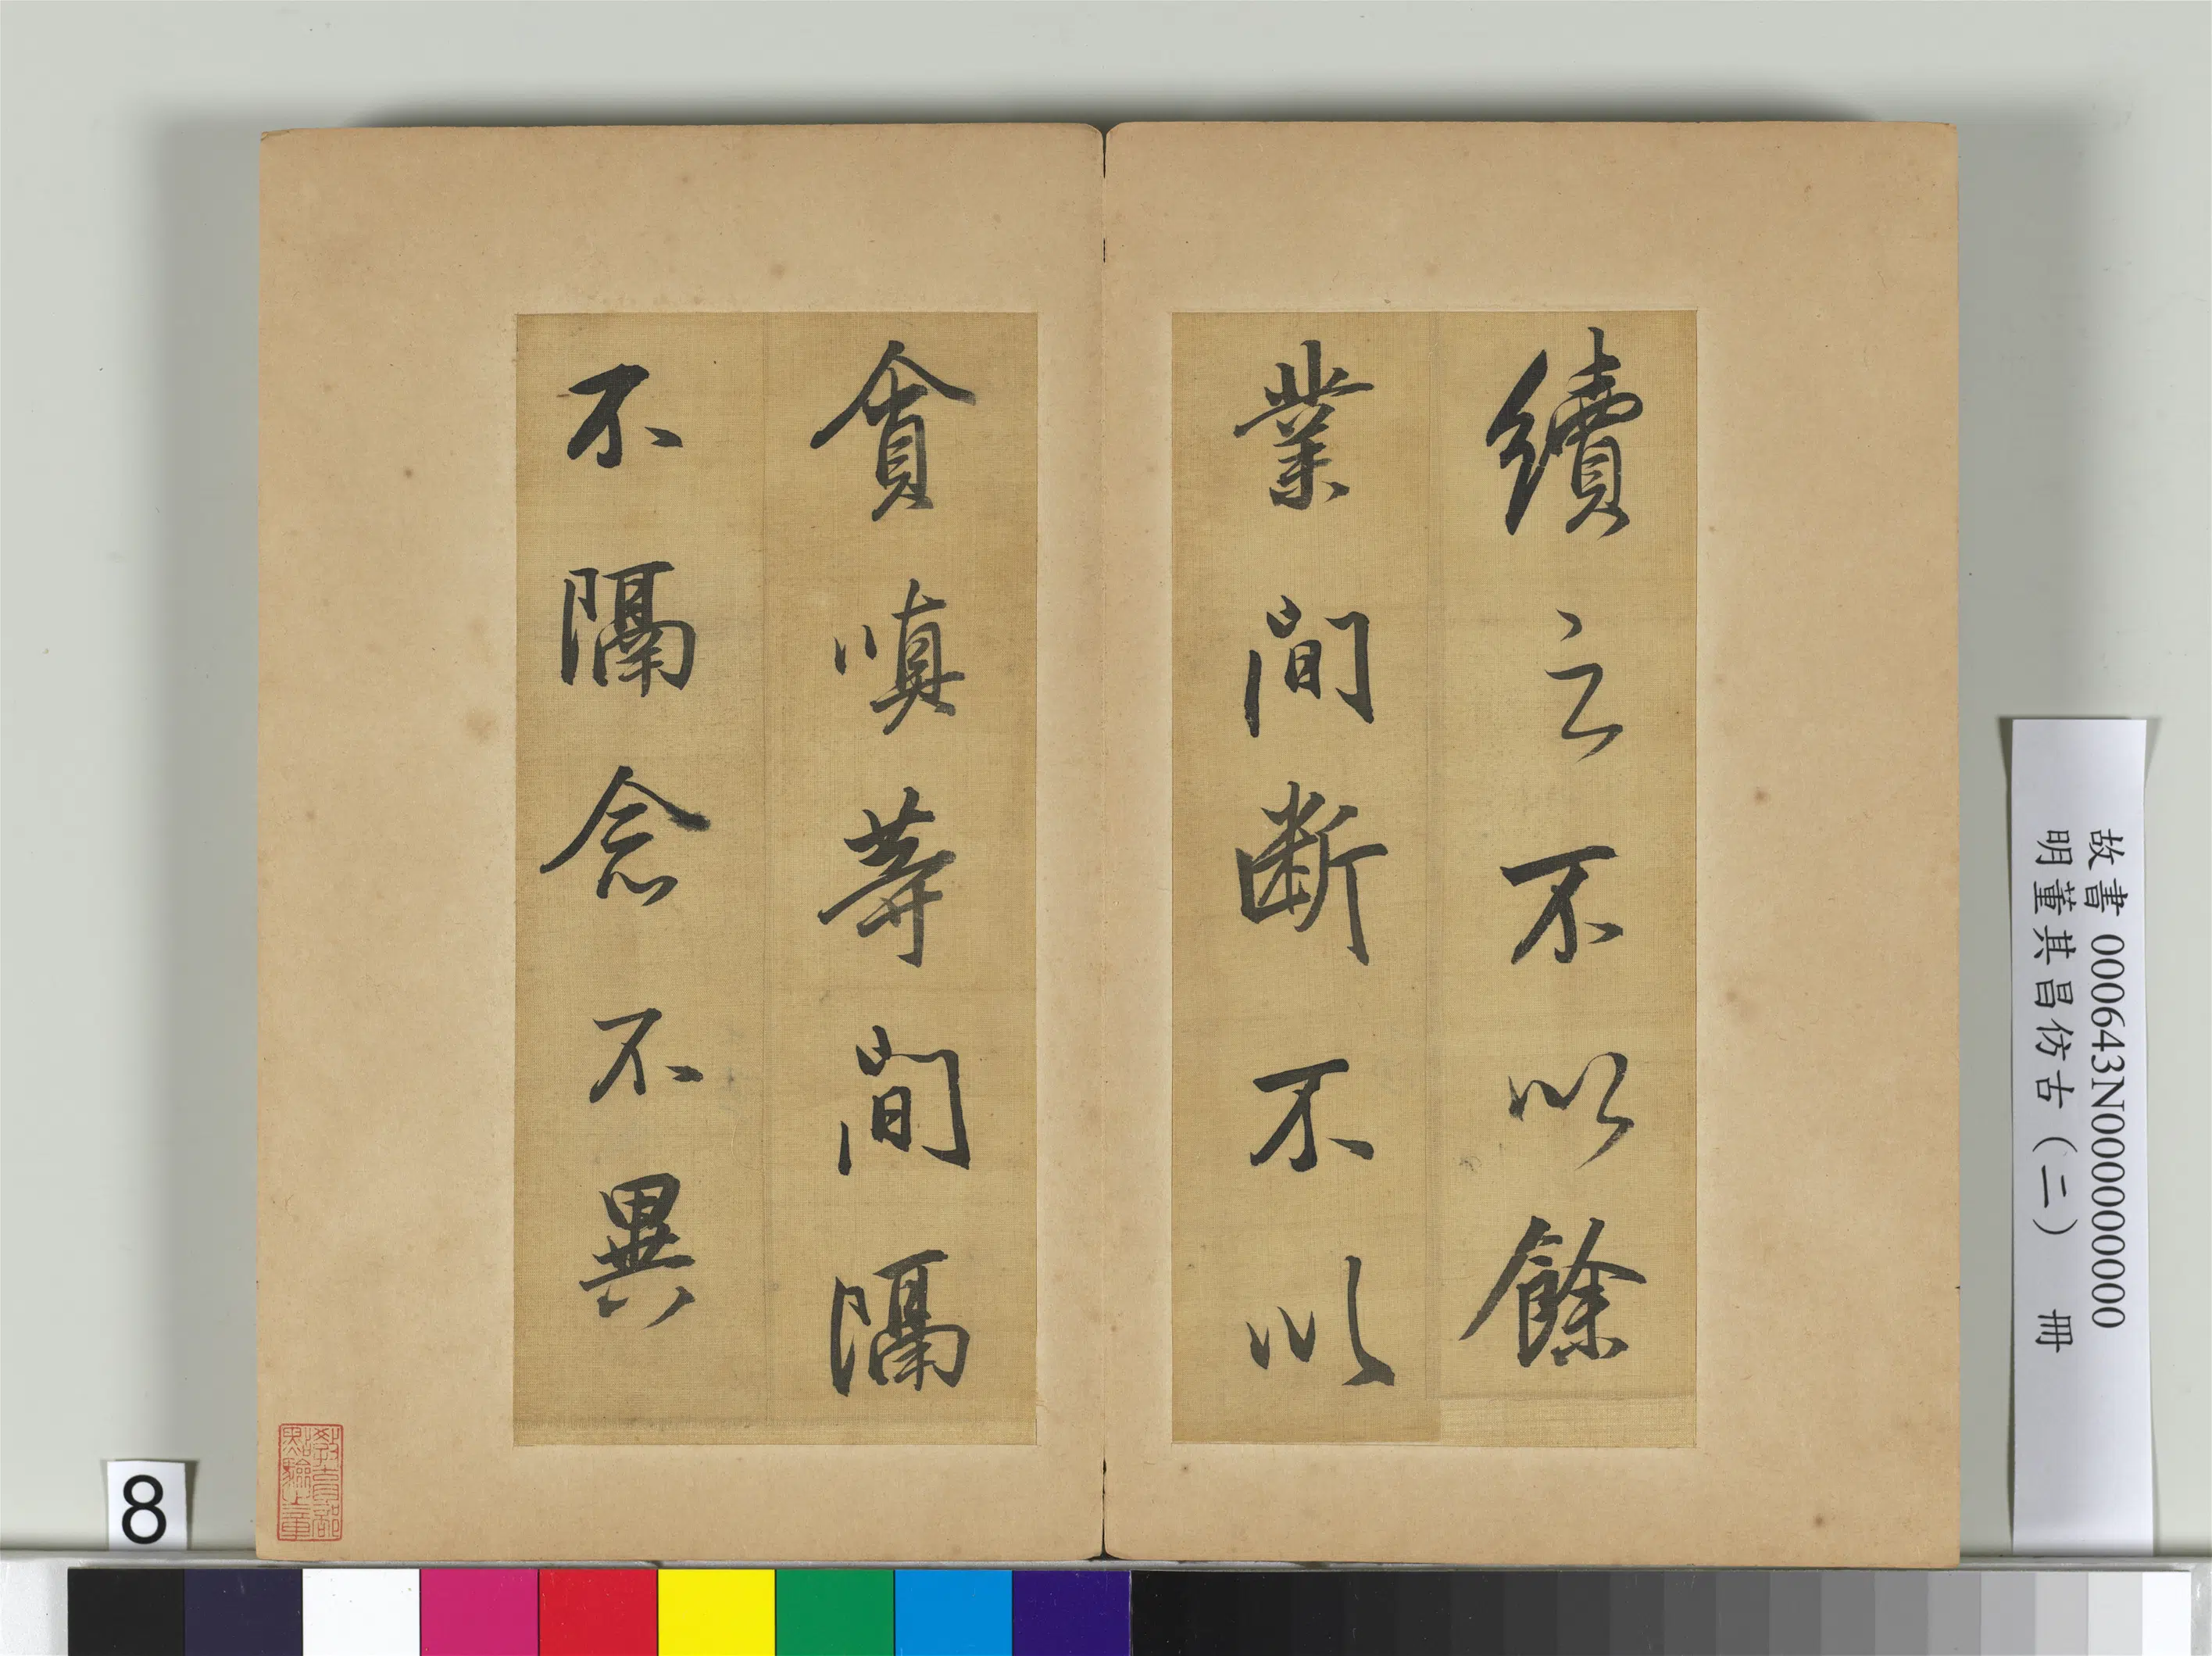 續之不以餘
業間斷不以
貪嗔等間隔
不隔念不異
教育部
點驗之章
故書 000643N000000000
明董其昌仿古(二) 冊
8